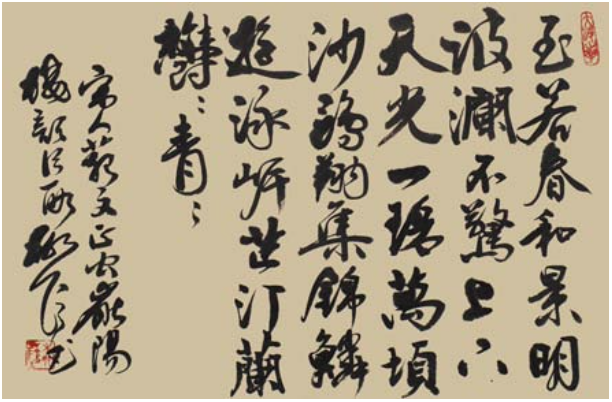 至若春和景明
波瀾不驚上下
天光一碧萬頃
沙鷗翔集錦鱗
遊泳岸芷汀蘭
欝〻青〻
宋人范文正公嶽陽
樓